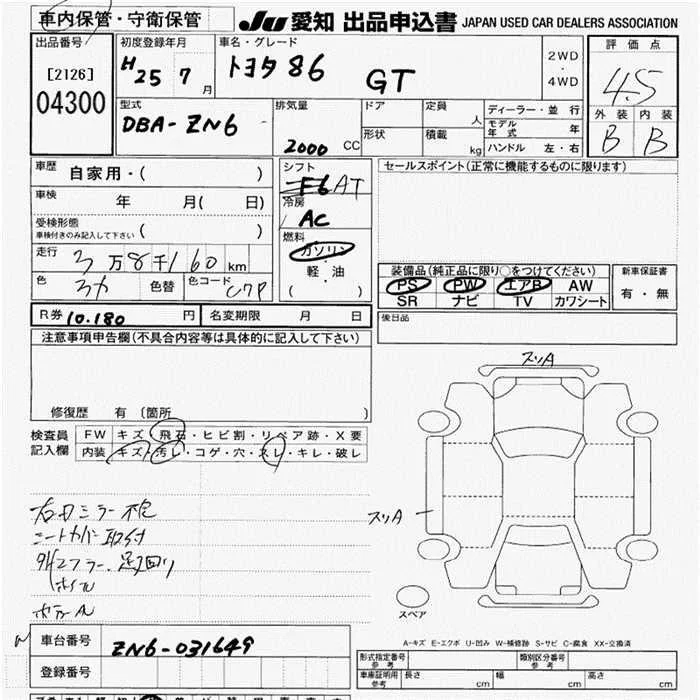 車内保管・守衛保管
JU 愛知 出品申込書 JAPAN USED CAR DEALERS ASSOCIATION
出品番号
[2126]
04300
初度登録年月
H 25 7 月
車名・グレード
トヨタ 86 GT
2WD
・
4WD
評価点
4.5
外装 内装
B B
型式
DBA-ZN6
排気量
2000 CC
ドア
形状
定員
人
積載
kg
ディーラー・並行
モデル年式 年
ハンドル 左・右
車歴
自家用・( )
車検
年 月( 日)
受検形態
車検付きのみ記入して下さい ( )
走行
3万8千160 km
色
色替
色コード
C7P
シフト
F6 AT
冷房
AC
燃料
ガソリン
・
軽・油
( )
セールスポイント(正常に機能するものに限ります)
装備品(純正品に限り○をつけてください)
PS PW エアB AW
SR ナビ TV カワシート
新車保証書
有・無
R券 10.180 円
名変期限 月 日
後日品
注意事項申告欄(不具合内容等は具体的に記入して下さい)
修復歴 有 〔箇所 〕
検査員
記入欄
FW キズ・飛石・ヒビ割・リペア跡・X要
内装 キズ・汚レ・コゲ・穴・スレ・キレ・破レ
スリA
スリA
スペア
右ドミラー
シートカバー取付
外マフラー、足回り
ホイル
ボデーA
A-キズ E-エクボ U-凹み W-補修跡 S-サビ C-腐食 XX-交換済
車台番号
ZN6-031649
登録番号
形式指定番号
参考
類別区分番号
参考
車庫証明用
参考
長さ cm 幅 cm 高さ cm